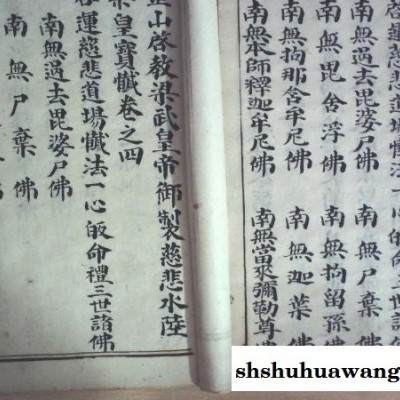 運慈悲道場懺法一心
南無過去毘婆尸佛 南無尸棄佛
南無毘舍浮佛 南無拘留孫佛
南無拘那含牟尼佛 南無迦葉佛
南無本師釋迦牟尼佛 南無當來彌勒尊佛
山啓教梁武皇帝御製慈悲水陸
皇寶懺卷之四
運慈悲道場懺法一心皈命禮三世諸佛
南無過去毘婆尸佛
南無尸棄佛
shshuhuawang